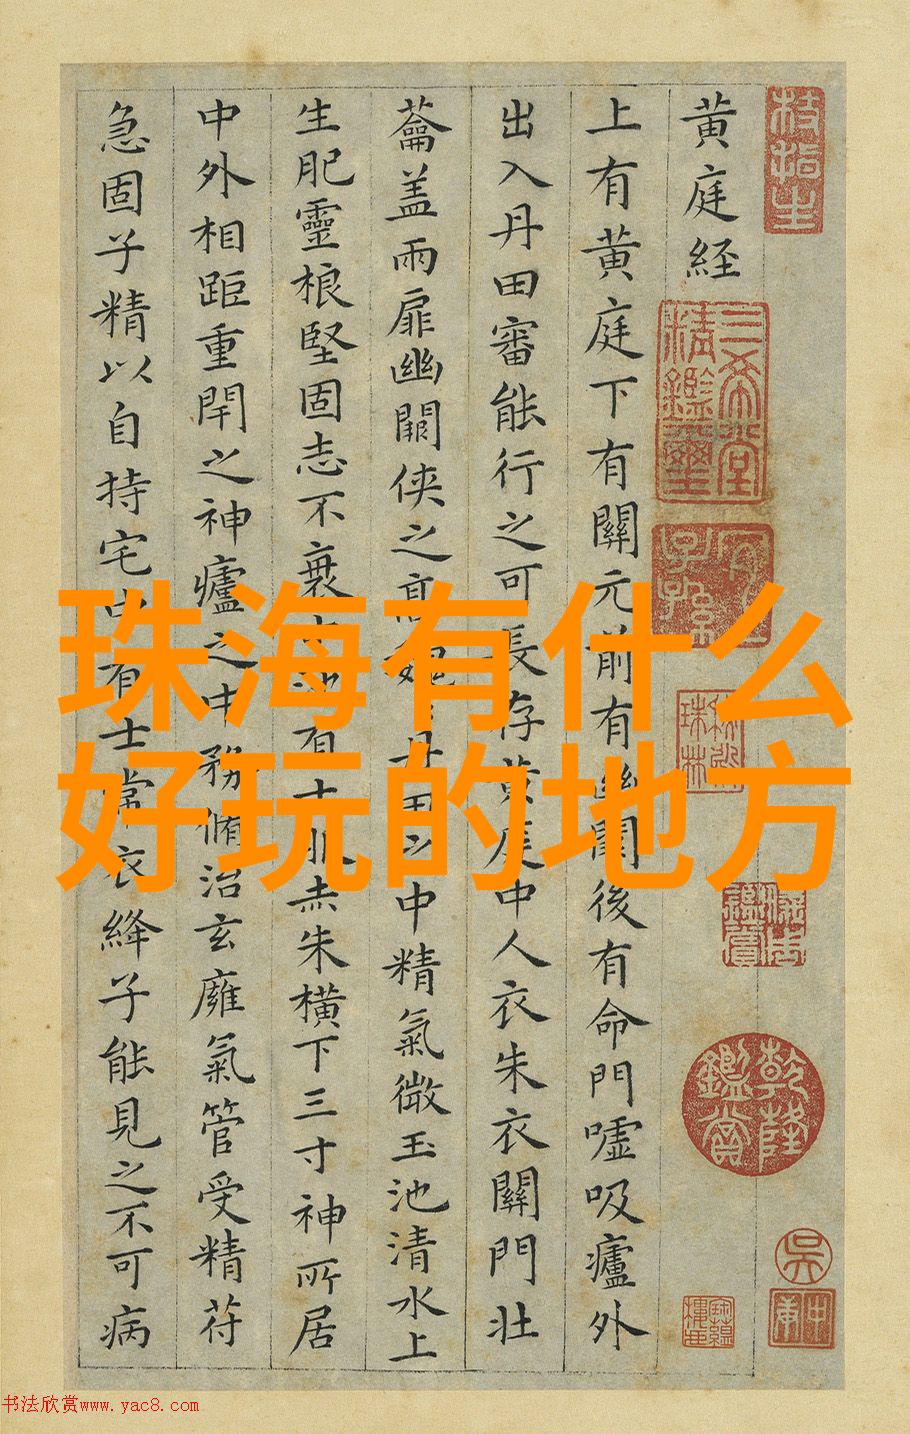 珠海有什么
好玩的地方
黄庭経
上有黄庭下有關元前有幽闕後有命門嘘吸廬外
出入丹田審能行之可長存黄庭中人衣朱衣關門壯
蘥盖兩扉幽闕俠之高巍丹田之中精氣微玉池清水上
生肥靈根堅固志不衰中池有士服赤朱横下三寸神所居
中外相距重閈之神廬之中務脩治玄膺氣管受精苻
急固子精以自持宅中有士常衣絳子能見之不可病
三希堂
精鑑璽
宜子孫
乾隆
鑑賞
吳
书法欣赏www.yac8.com